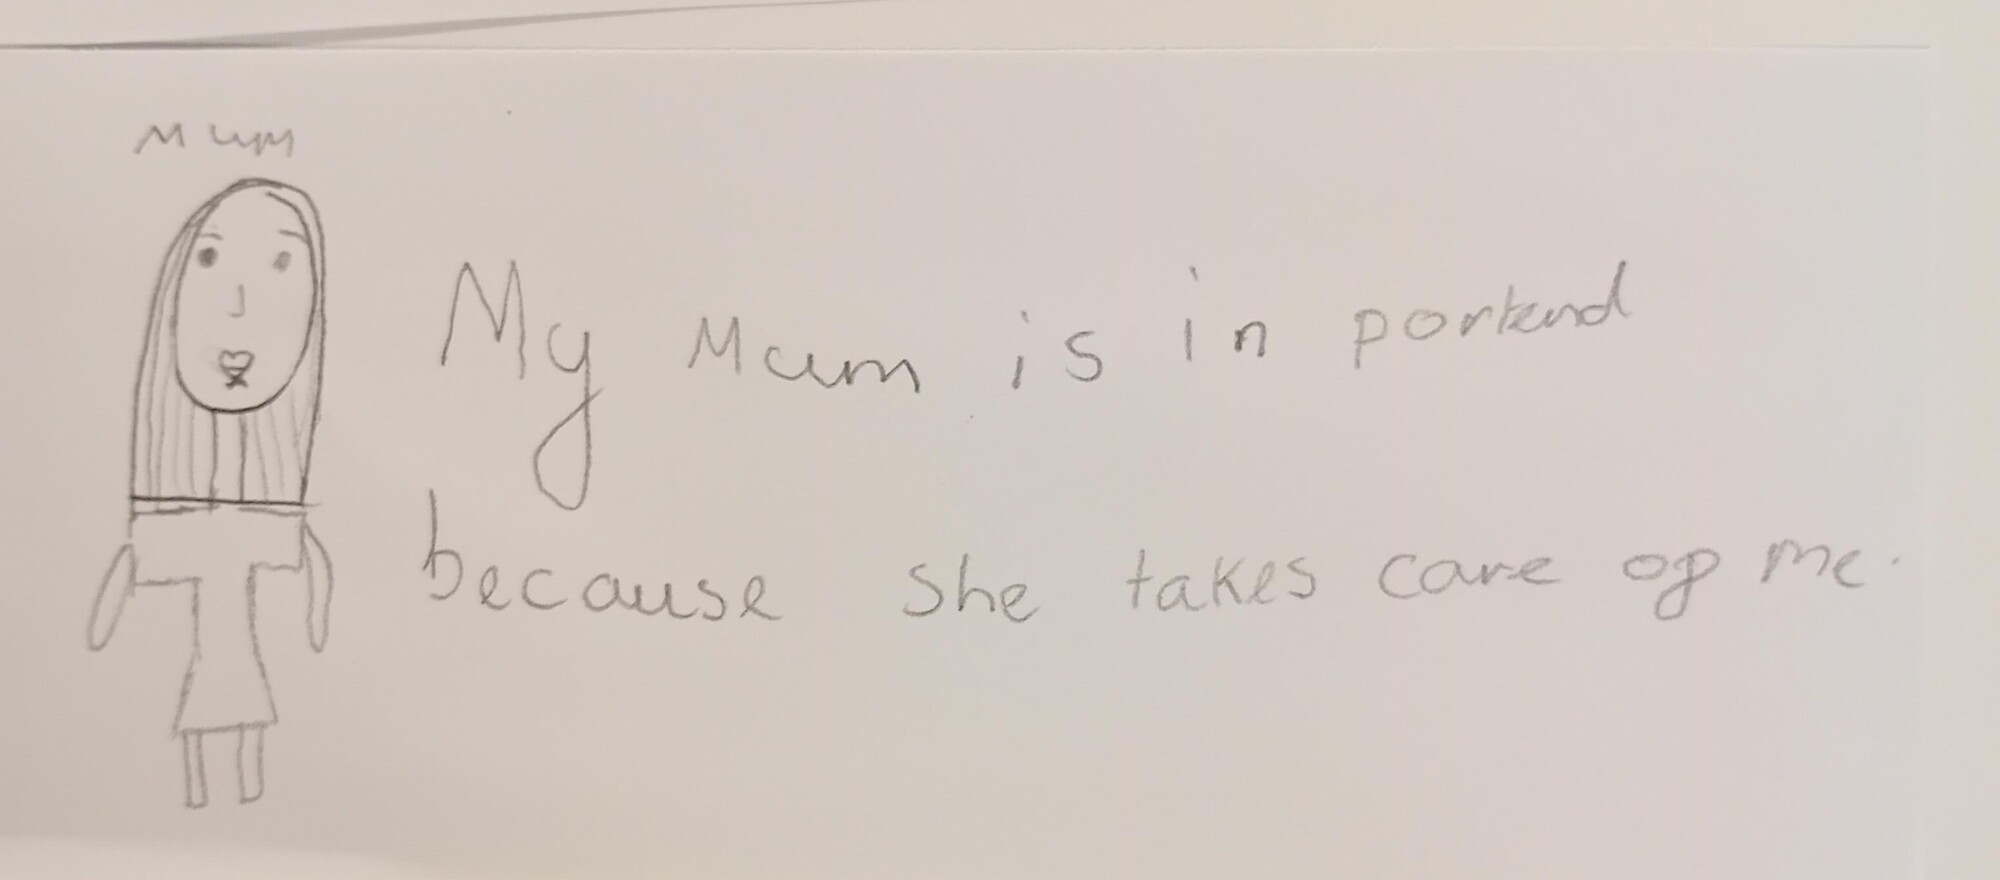 Mum
My Mum is in portend
because she takes care of me.